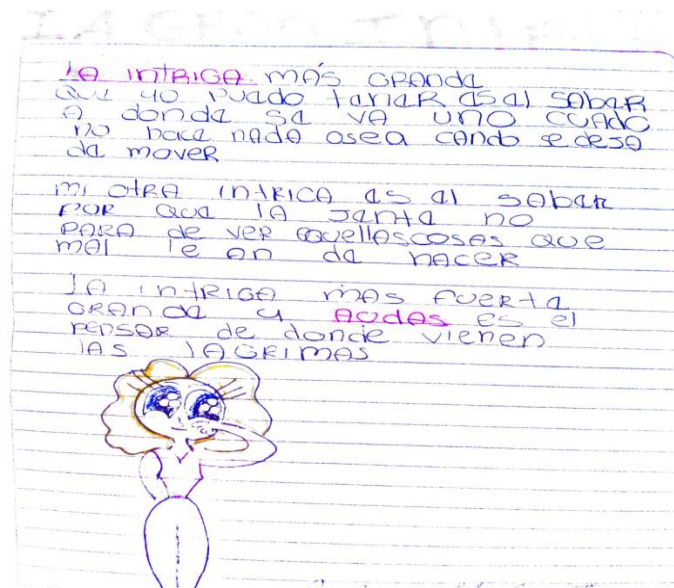 LA INTRIGA MÁS GRANDE
QUE YO PUEDO TENER ES EL SABER
A DONDE SE VA UNO CUADO
NO HACE NADA OSEA CANDO SE DESA
DE MOVER
MI OTRA INTRICA ES EL SABER
POR QUE LA JANTE NO
PARA DE VER AQUELLAS COSAS QUE
MAL LE AN DE HACER
LA INTRIGA MAS FUERTE
GRANDE Y AUDAS ES EL
PENSAR DE DONDE VIENEN
LAS LAGRIMAS